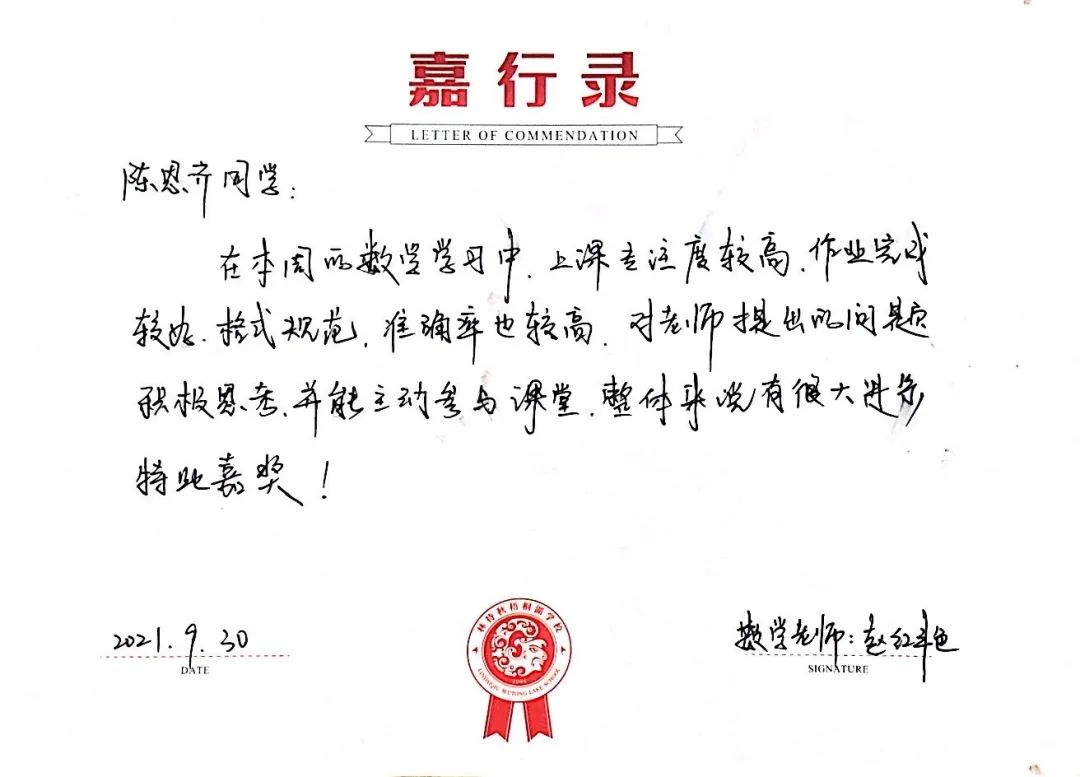 嘉行录
LETTER OF COMMENDATION
陈恩齐同学:
在本周的数学学习中,上课专注度较高,作业完成
较好,格式规范,准确率也较高,对老师提出的问题
积极思考,并能主动参与课堂,整体来说有很大进步
特此嘉奖!
林诗秋梧桐湖学校
WUTONG LAKE SCHOOL
2021.9.30
DATE
数学老师:赵红
SIGNATURE